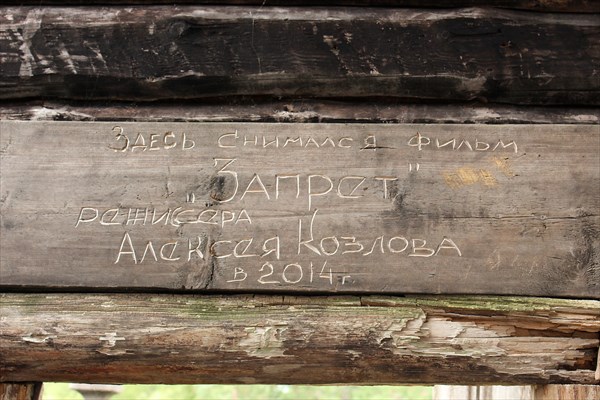 Здесь снимался фильм
"Запрет"
режиссера
Алексея Козлова
в 2014 г.